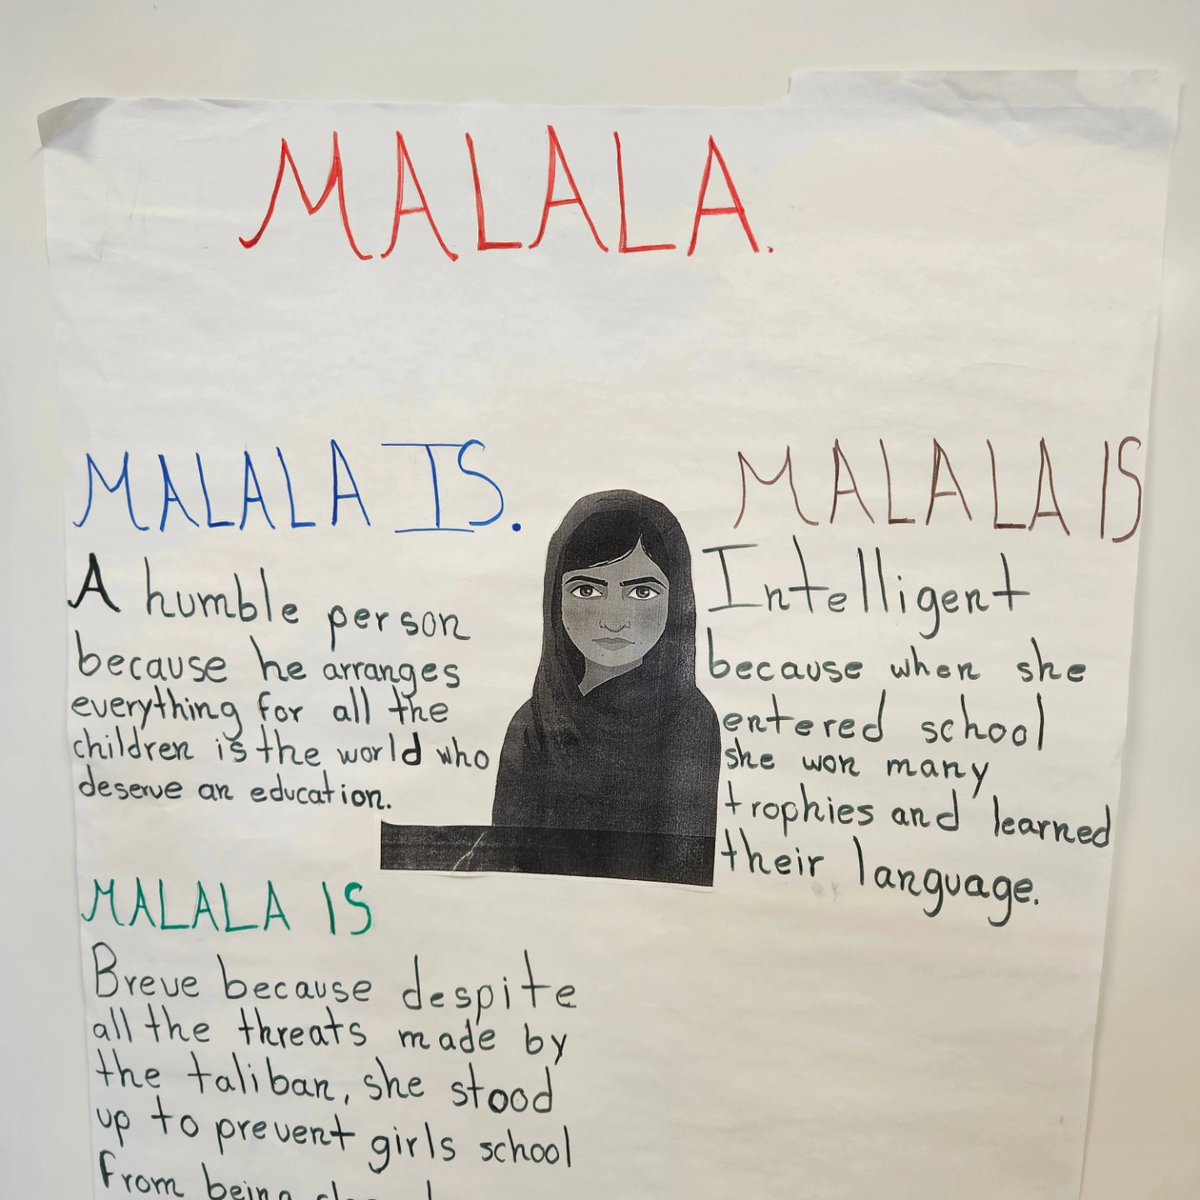 MALALA.
MALALA IS.
A humble person
because he arranges
everything for all the
children is the world who
deserve an education.
MALALA IS
Intelligent
because when she
entered school
she won many
trophies and learned
their language.
MALALA IS
Breve because despite
all the threats made by
the taliban, she stood
up to prevent girls school
from being